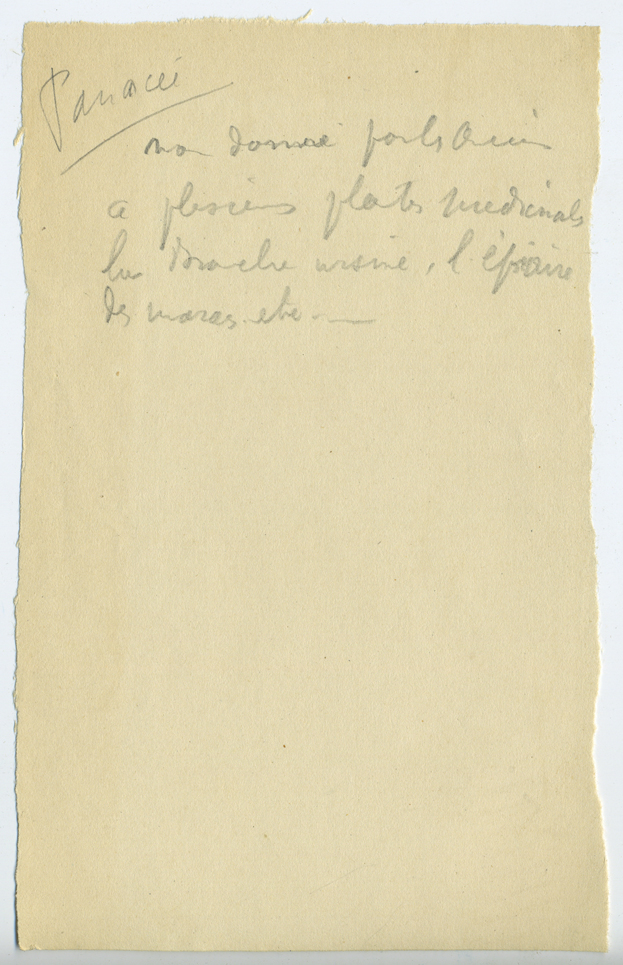 Panacée
nom donné par les anciens
a plusieurs plantes medicinales
la branche ursine, l'épiaire
des marais etc.